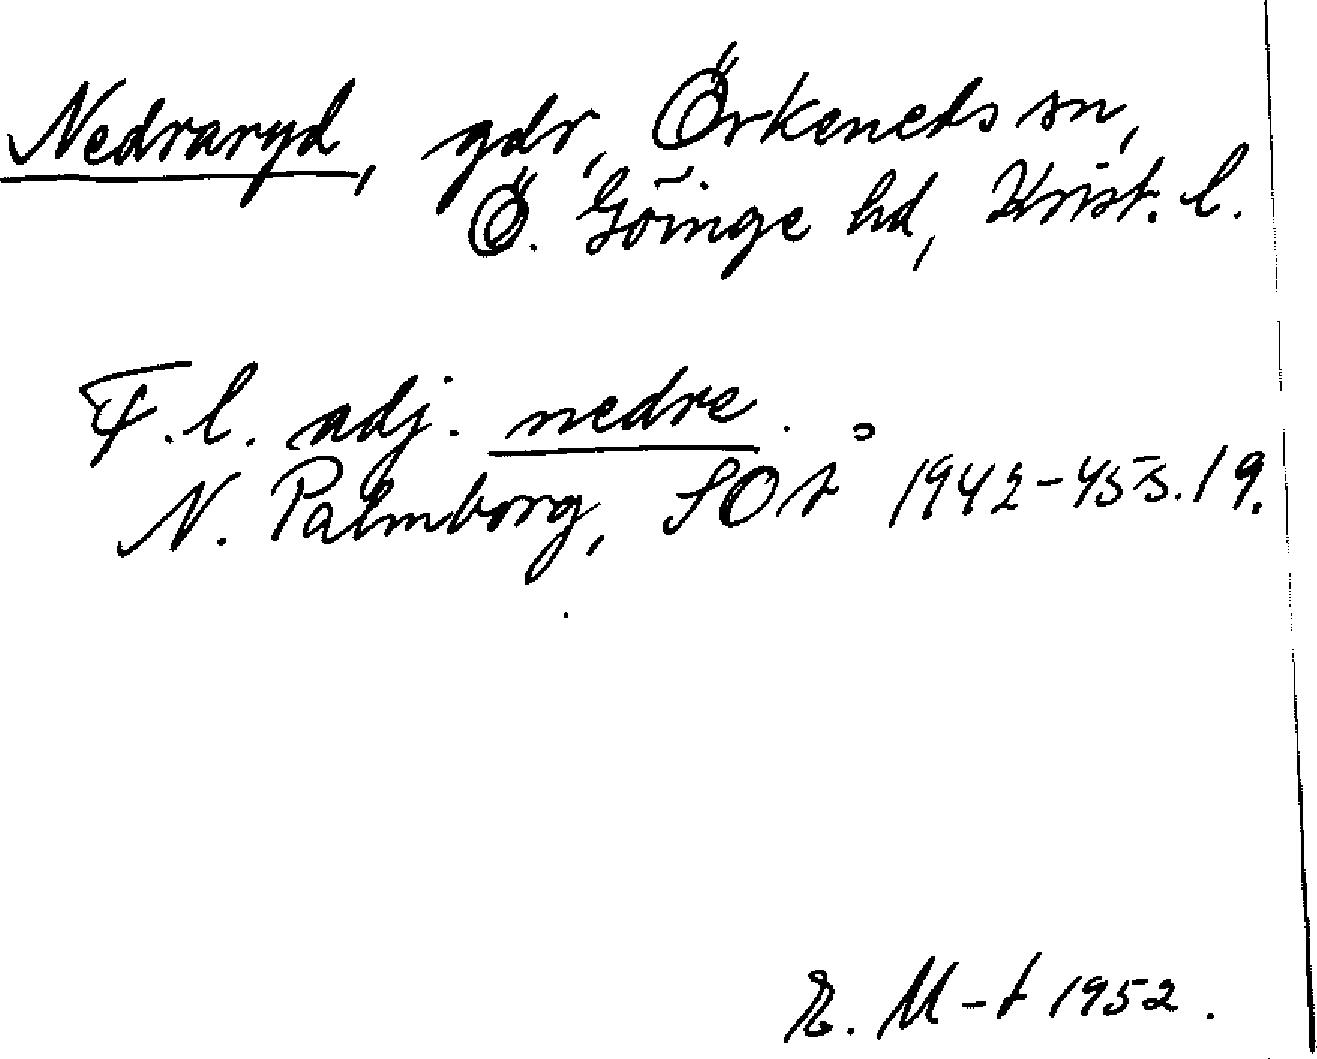 Nedraryd, gdr, Örkeneds sn,
Ö. Göinge hd, Krist. l.
F.l. adj. nedre.
N. Palmborg, SOÅ 1942-45 s. 19.
E. M-t 1952.